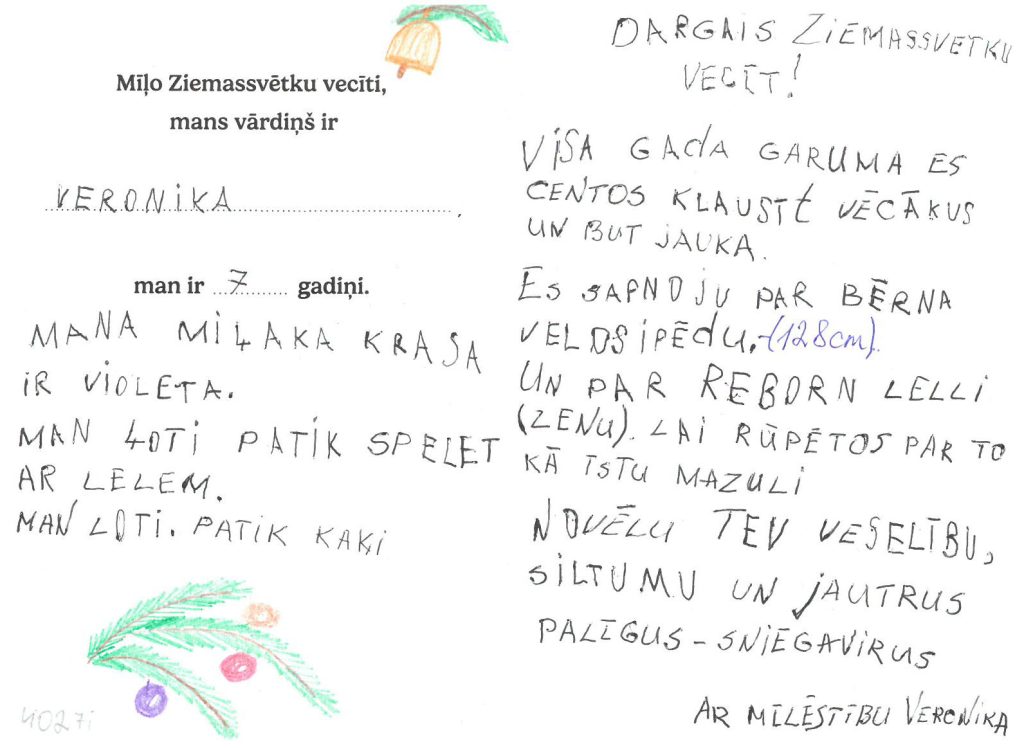 Mīļo Ziemassvētku vecīti,
mans vārdiņš ir
VERONIKA.
man ir 7 gadiņi.
MANA MIĻAKA KRASA
IR VIOLETA.
MAN ĻOTI PATIK SPELET
AR LELEM.
MAN ĻOTI. PATIK KAĶI
4027i
DARGAIS ZIEMASSVETKU
VECĪT!
VISA GADA GARUMA ES
CENTOS KLAUSĪT VĒCĀKUS
UN BUT JAUKA.
ES SAPNOJU PAR BĒRNA
VELOSIPĒDU. (128cm).
UN PAR REBORN LELLI
(ZENU). LAI RŪPĒTOS PAR TO
KĀ ĪSTU MAZULI
NOVĒLU TEV VESELĪBU,
SILTUMU UN JAUTRUS
PALĪGUS - SNIEGAVIRUS
AR MĪLĒSTĪBU VERONIKA